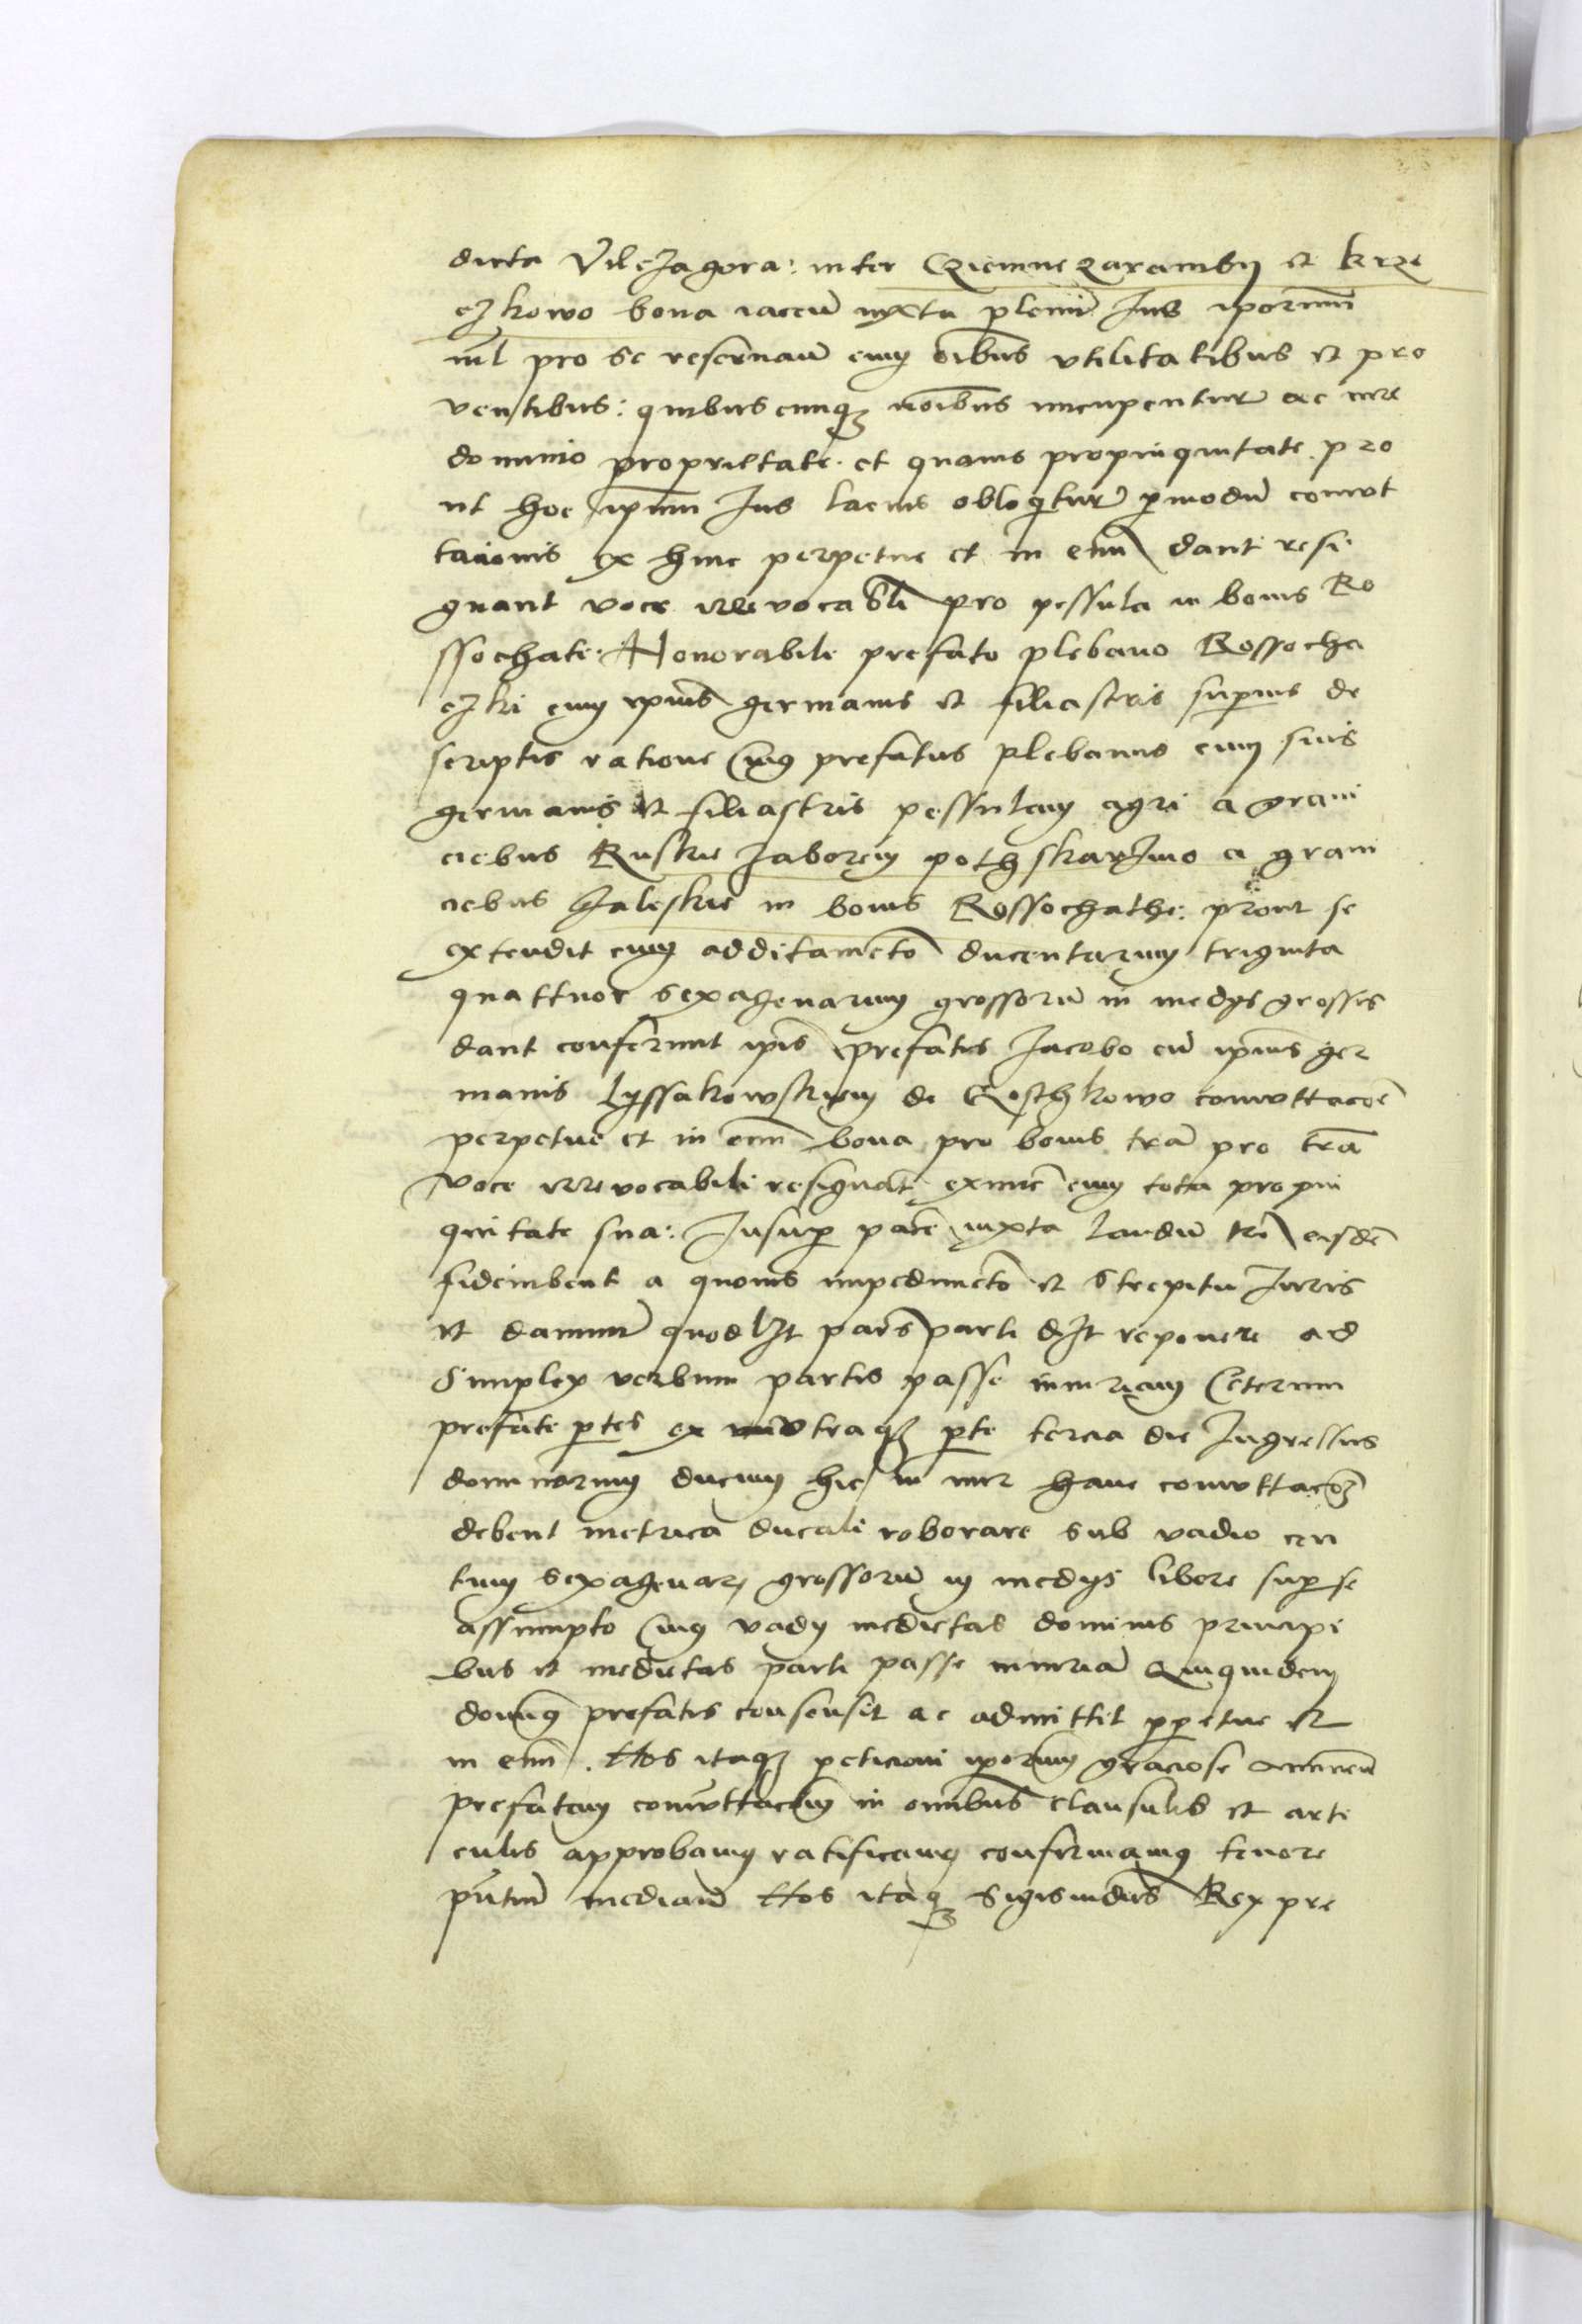 dicta Vilczagora: inter Cziemne Zarambij et Krze
czkowo bona iaceñ iuxta plenũ Ius ipõrum
nil pro se reseruañ cum oĩbus vtilitatibus et pro
uentibus: quibuscunqꝫ nõibus nuncupentur ac iure
dominio proprietate et quouis propinquitate pro
ut hoc ipsum Ius laciũs obloqitur p modũ comut
tacionis ex hinc perpetue et in euũ dant resi
gnant voce irreuocabli pro pessula in bonis Ro
ssochate. Honorabile prefato plebano Rossocha
czki cum ipsius germanis et filiastris superius de
scriptis ratione cuius prefatus plebanus cum suis
germanis et filiastris pessulam agri a grani
ciebus Ruskie Jaborem pothskarzino a grani
ciebus Zaleskie in bonis Rossochathe: prout se
extendit cum additamẽto ducentarum triginta
quattuor sexagenarum grossorũ in medys grossis
dant conferunt ipĩs prefatis Jacobo cũ ipsius ger
manis Lyssakowskym de Coschkowo comuttacõe
perpetue et in euũ bona pro bonis trã pro trã
voce irreuocabili resignãt exnũc cum tota propin
quitate sua: Insup pacẽ iuxta laudũ tri eisdẽ
fideiubent a quouis impedimẽto et strepitu Iuris
et damnũ quodlẓt pars parti dẓt reponere ad
simplex verbum partis passe iniuriam Ceterum
prefate ptes ex vtraqꝫ pte tercia die Ingressus
dominorum ducum hic in mr hanc comuttacõẽ
debent metrica ducali roborare sub vadio cen
tum sexagenarꝝ grossorũ in medys libere sup se
assumpto cuius vadij medietas dominis principi
bus et medietas parti passe iniuriã Quiquidem
dominus prefatis consensit ac admittit ppetue et
in euũ. Nos itaqꝫ peticioni ipõrum graciose annueñ
prefatam comuttacõem in omĩbus clausulis et arti
culis approbamus ratificamus confirmamus tenore
pñtiũ mediañ Nos itaqꝫ Sigismũdus Rex pre